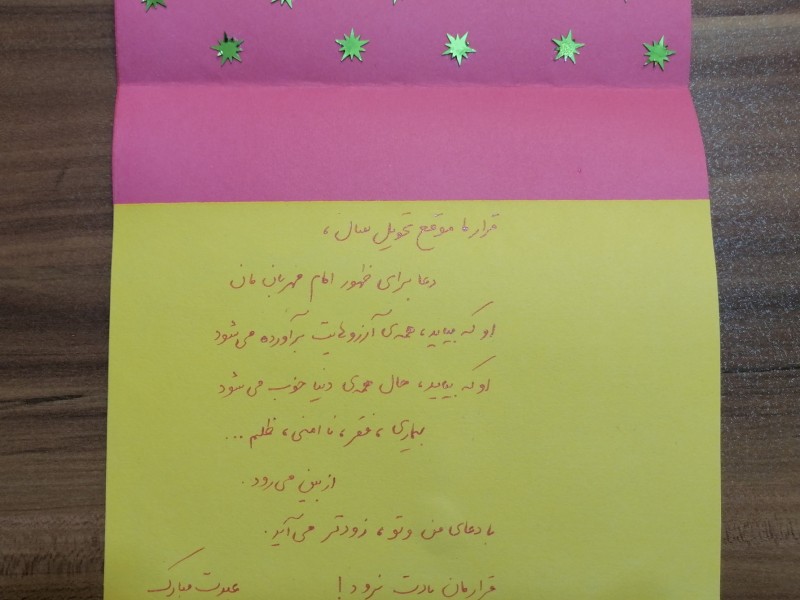 قرار ما موقع تحویل سال،
دعا برای ظهور امام مهربان مان
او که بیاید، همه‌ی آرزوهایت برآورده می‌شود
او که بیاید، حال همه‌ی دنیا خوب می‌شود
بیماری، فقر، ناامنی، ظلم ...
از بین می‌رود.
با دعای من و تو، زودتر می‌آید.
قرارمان یادت نرود! عیدت مبارک